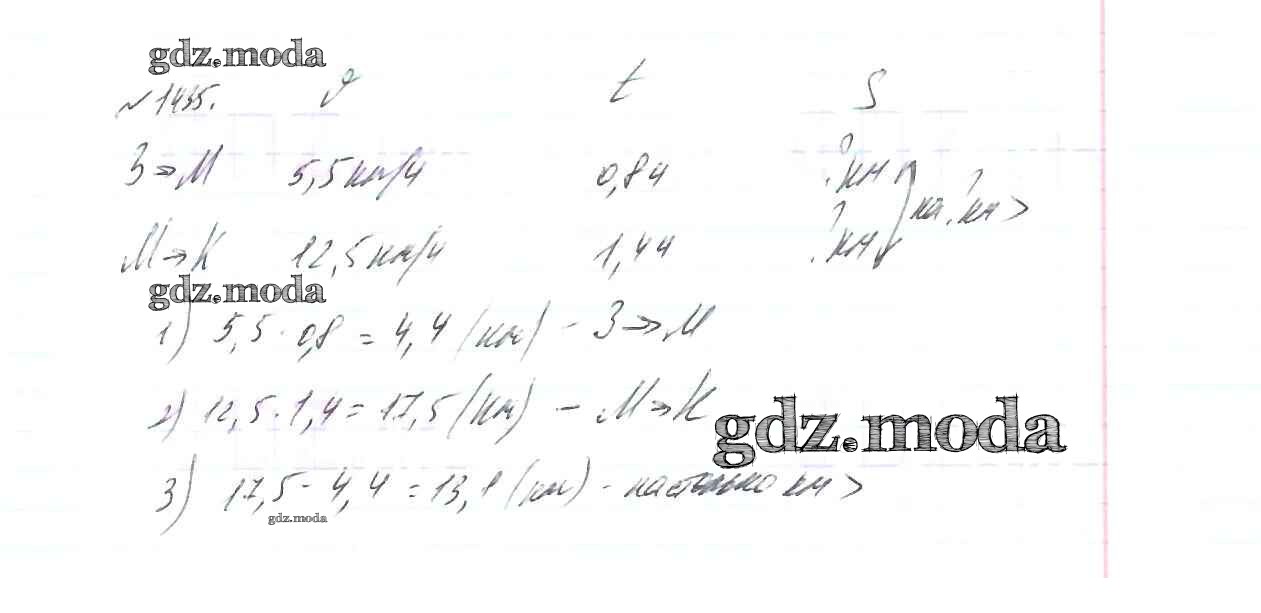 gdz.moda
№1435. v t S
З→М 5,5км/ч 0,8ч ?км
на ?км >
М→К 12,5км/ч 1,4ч ?км
gdz.moda
1) 5,5·0,8=4,4(км) - З→М
2) 12,5·1,4=17,5(км) - М→К
gdz.moda
3) 17,5-4,4=13,1(км) - настолько км >
gdz.moda